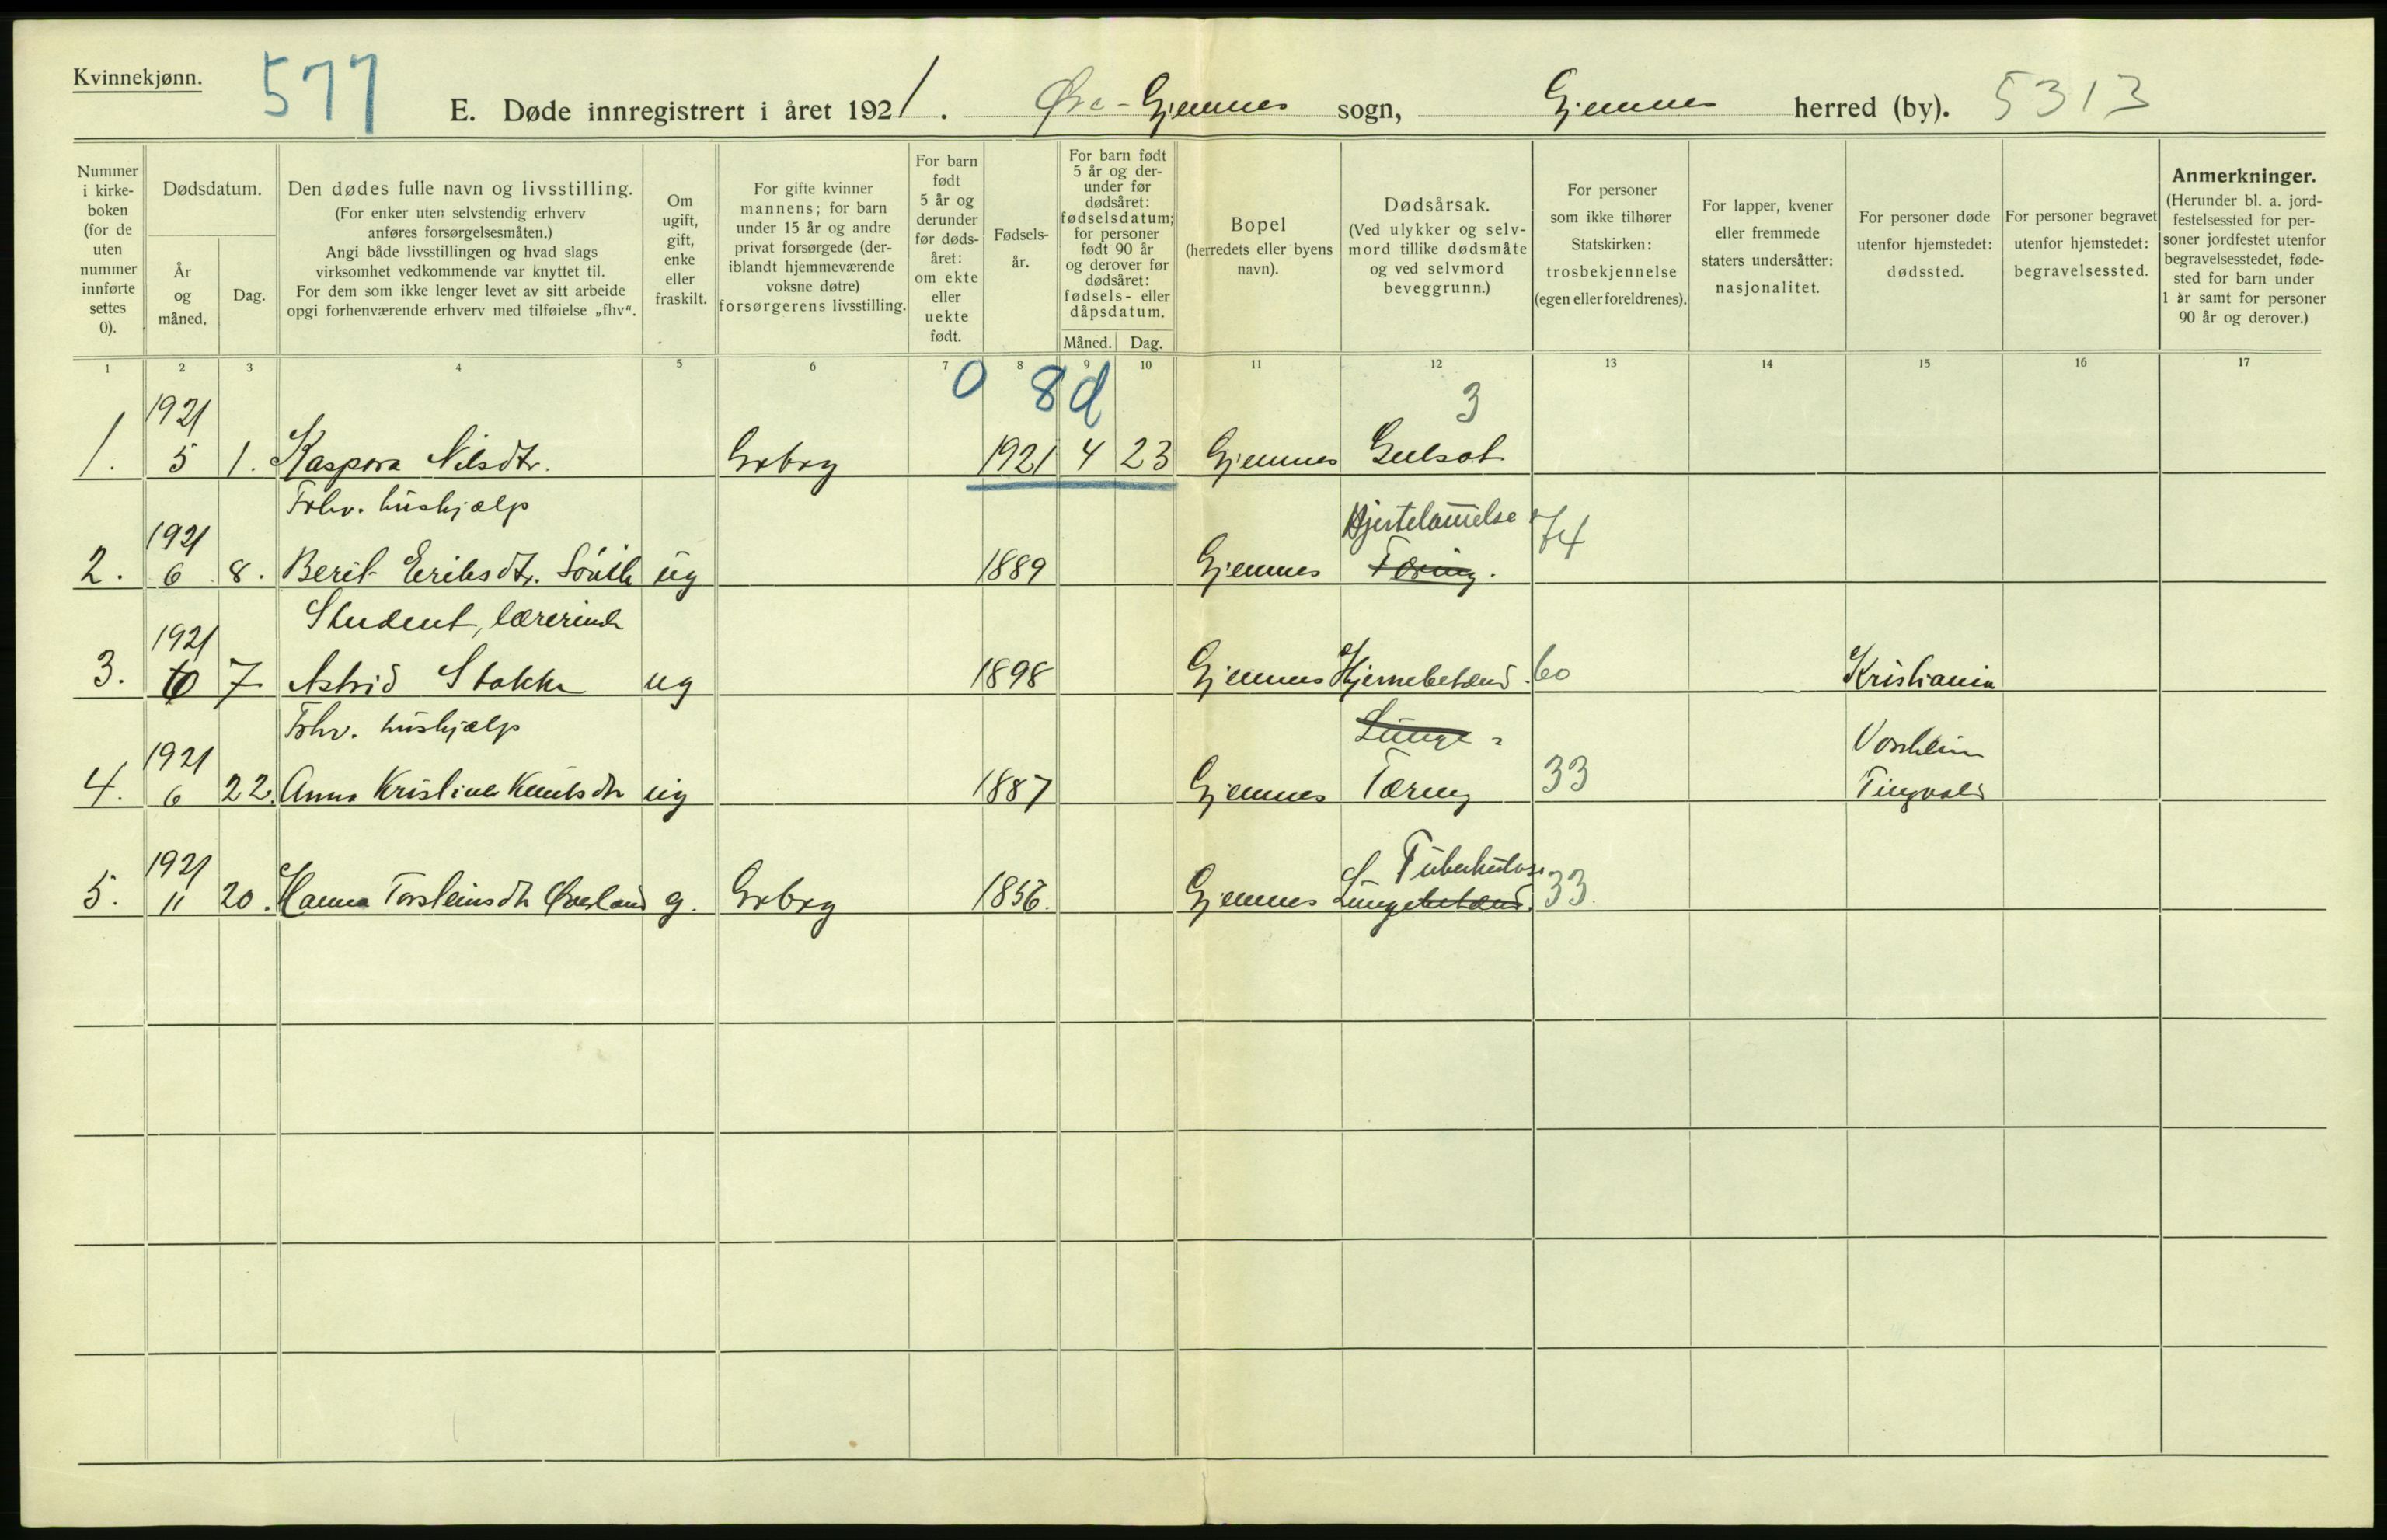 Kvinnekjønn.
577
E. Døde innregistrert i året 1921. Øre-Gjemnes sogn, Gjemnes herred (by). 5313
Nummer i kirke-boken (for de uten nummer innførte settes 0).
Dødsdatum.
År og måned.
Dag.
Den dødes fulle navn og livsstilling.
(For enker uten selvstendig erhverv anføres forsørgelsesmåten.)
Angi både livsstillingen og hvad slags virksomhet vedkommende var knyttet til.
For dem som ikke lenger levet av sitt arbeide opgi forhenværende erhverv med tilføielse „fhv“.
Om ugift, gift, enke eller fraskilt.
For gifte kvinner mannens; for barn under 15 år og andre privat forsørgede (der-iblandt hjemmeværende voksne døtre) forsørgerens livsstilling.
For barn født 5 år og derunder før døds-året: om ekte eller uekte født.
Fødsels-år.
For barn født 5 år og der-under før dødsåret: fødselsdatum; for personer født 90 år og derover før dødsåret: fødsels- eller dåpsdatum.
Måned. Dag.
Bopel (herredets eller byens navn).
Dødsårsak.
(Ved ulykker og selv-mord tillike dødsmåte og ved selvmord beveggrunn.)
For personer som ikke tilhører Statskirken: trosbekjennelse (egen eller foreldrenes).
For lapper, kvener eller fremmede staters undersåtter: nasjonalitet.
For personer døde utenfor hjemstedet: dødssted.
For personer begravet utenfor hjemstedet: begravelsessted.
Anmerkninger.
(Herunder bl. a. jord-festelsessted for per-soner jordfestet utenfor begravelsesstedet, føde-sted for barn under 1 år samt for personer 90 år og derover.)
1 2 3 4 5 6 7 8 9 10 11 12 13 14 15 16 17
0 8d
1921 3
1. 5 1. Kaspora Nilsdtr. Grbrg 1921 4 23 Gjemnes Gulsot
Fhv. hushjælp Hjertelammelse
1921 74
2. 6 8. Berit Eriksdtr. ug 1889 Gjemnes Tæring.
Student, lærerinde
1921
3. 6 7 Astrid Stokke ug 1898 Gjemnes Hjernebetænd. 60 Kristiania
Fhv. hushjælp Lunge-
1921
4. 6 22. Anna Kristine Knutsdtr ug 1887 Gjemnes Tæring 33 Tingvold
1921 Tuberkulose
5. 11 20. Hanna Torsteinsdtr Øverland g. Grbrg 1856. Gjemnes Lungebetænd. 33.